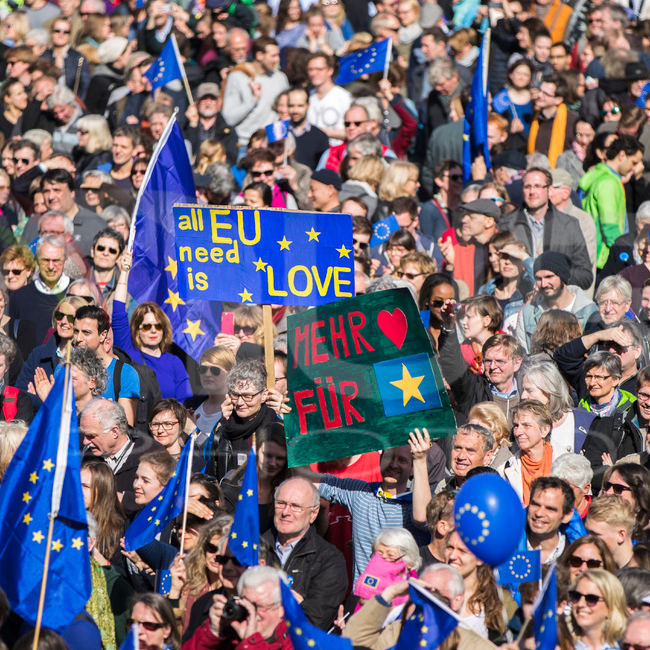 all EU
need
is LOVE
MEHR
FÜR